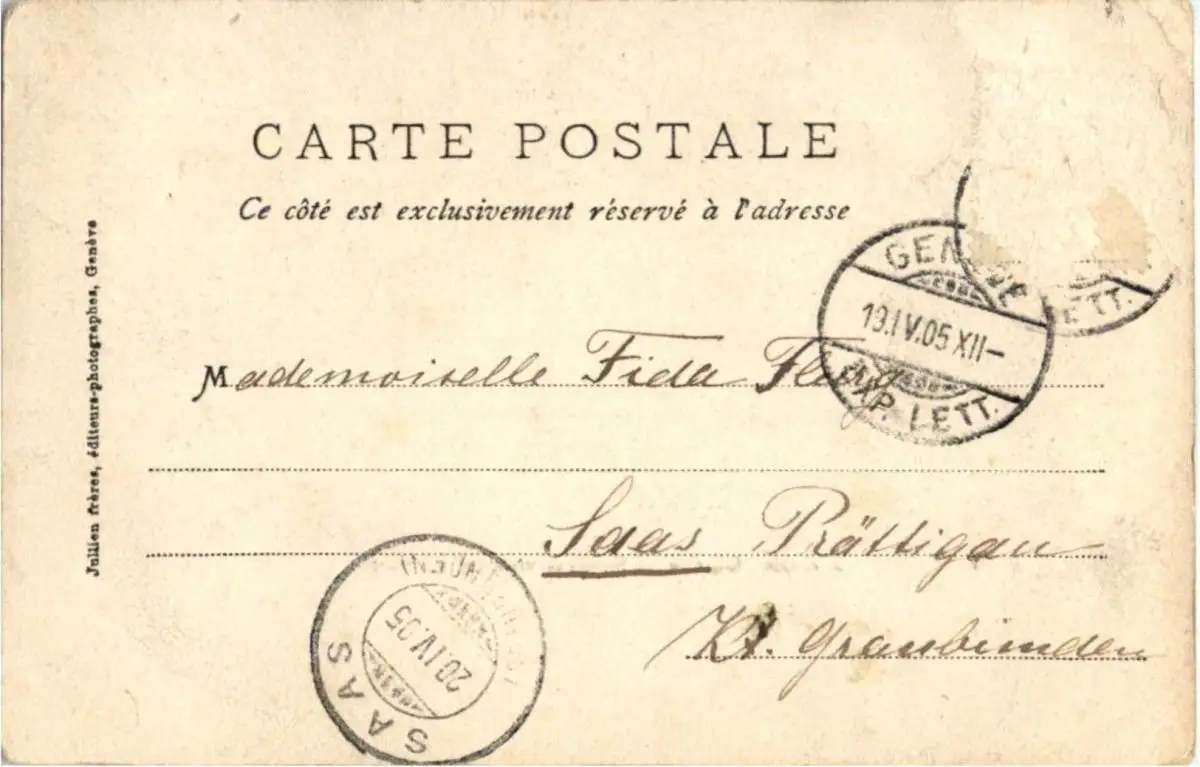 CARTE POSTALE
Ce côté est exclusivement réservé à l'adresse
GENÈVE
19.IV.05 XII–
EXP. LETT.
LETT.
Mademoiselle Fida
Saas Prättigau
Kt. Graubünden
SAAS
20.IV.05
Jullien frères, éditeurs-photographes, Genève